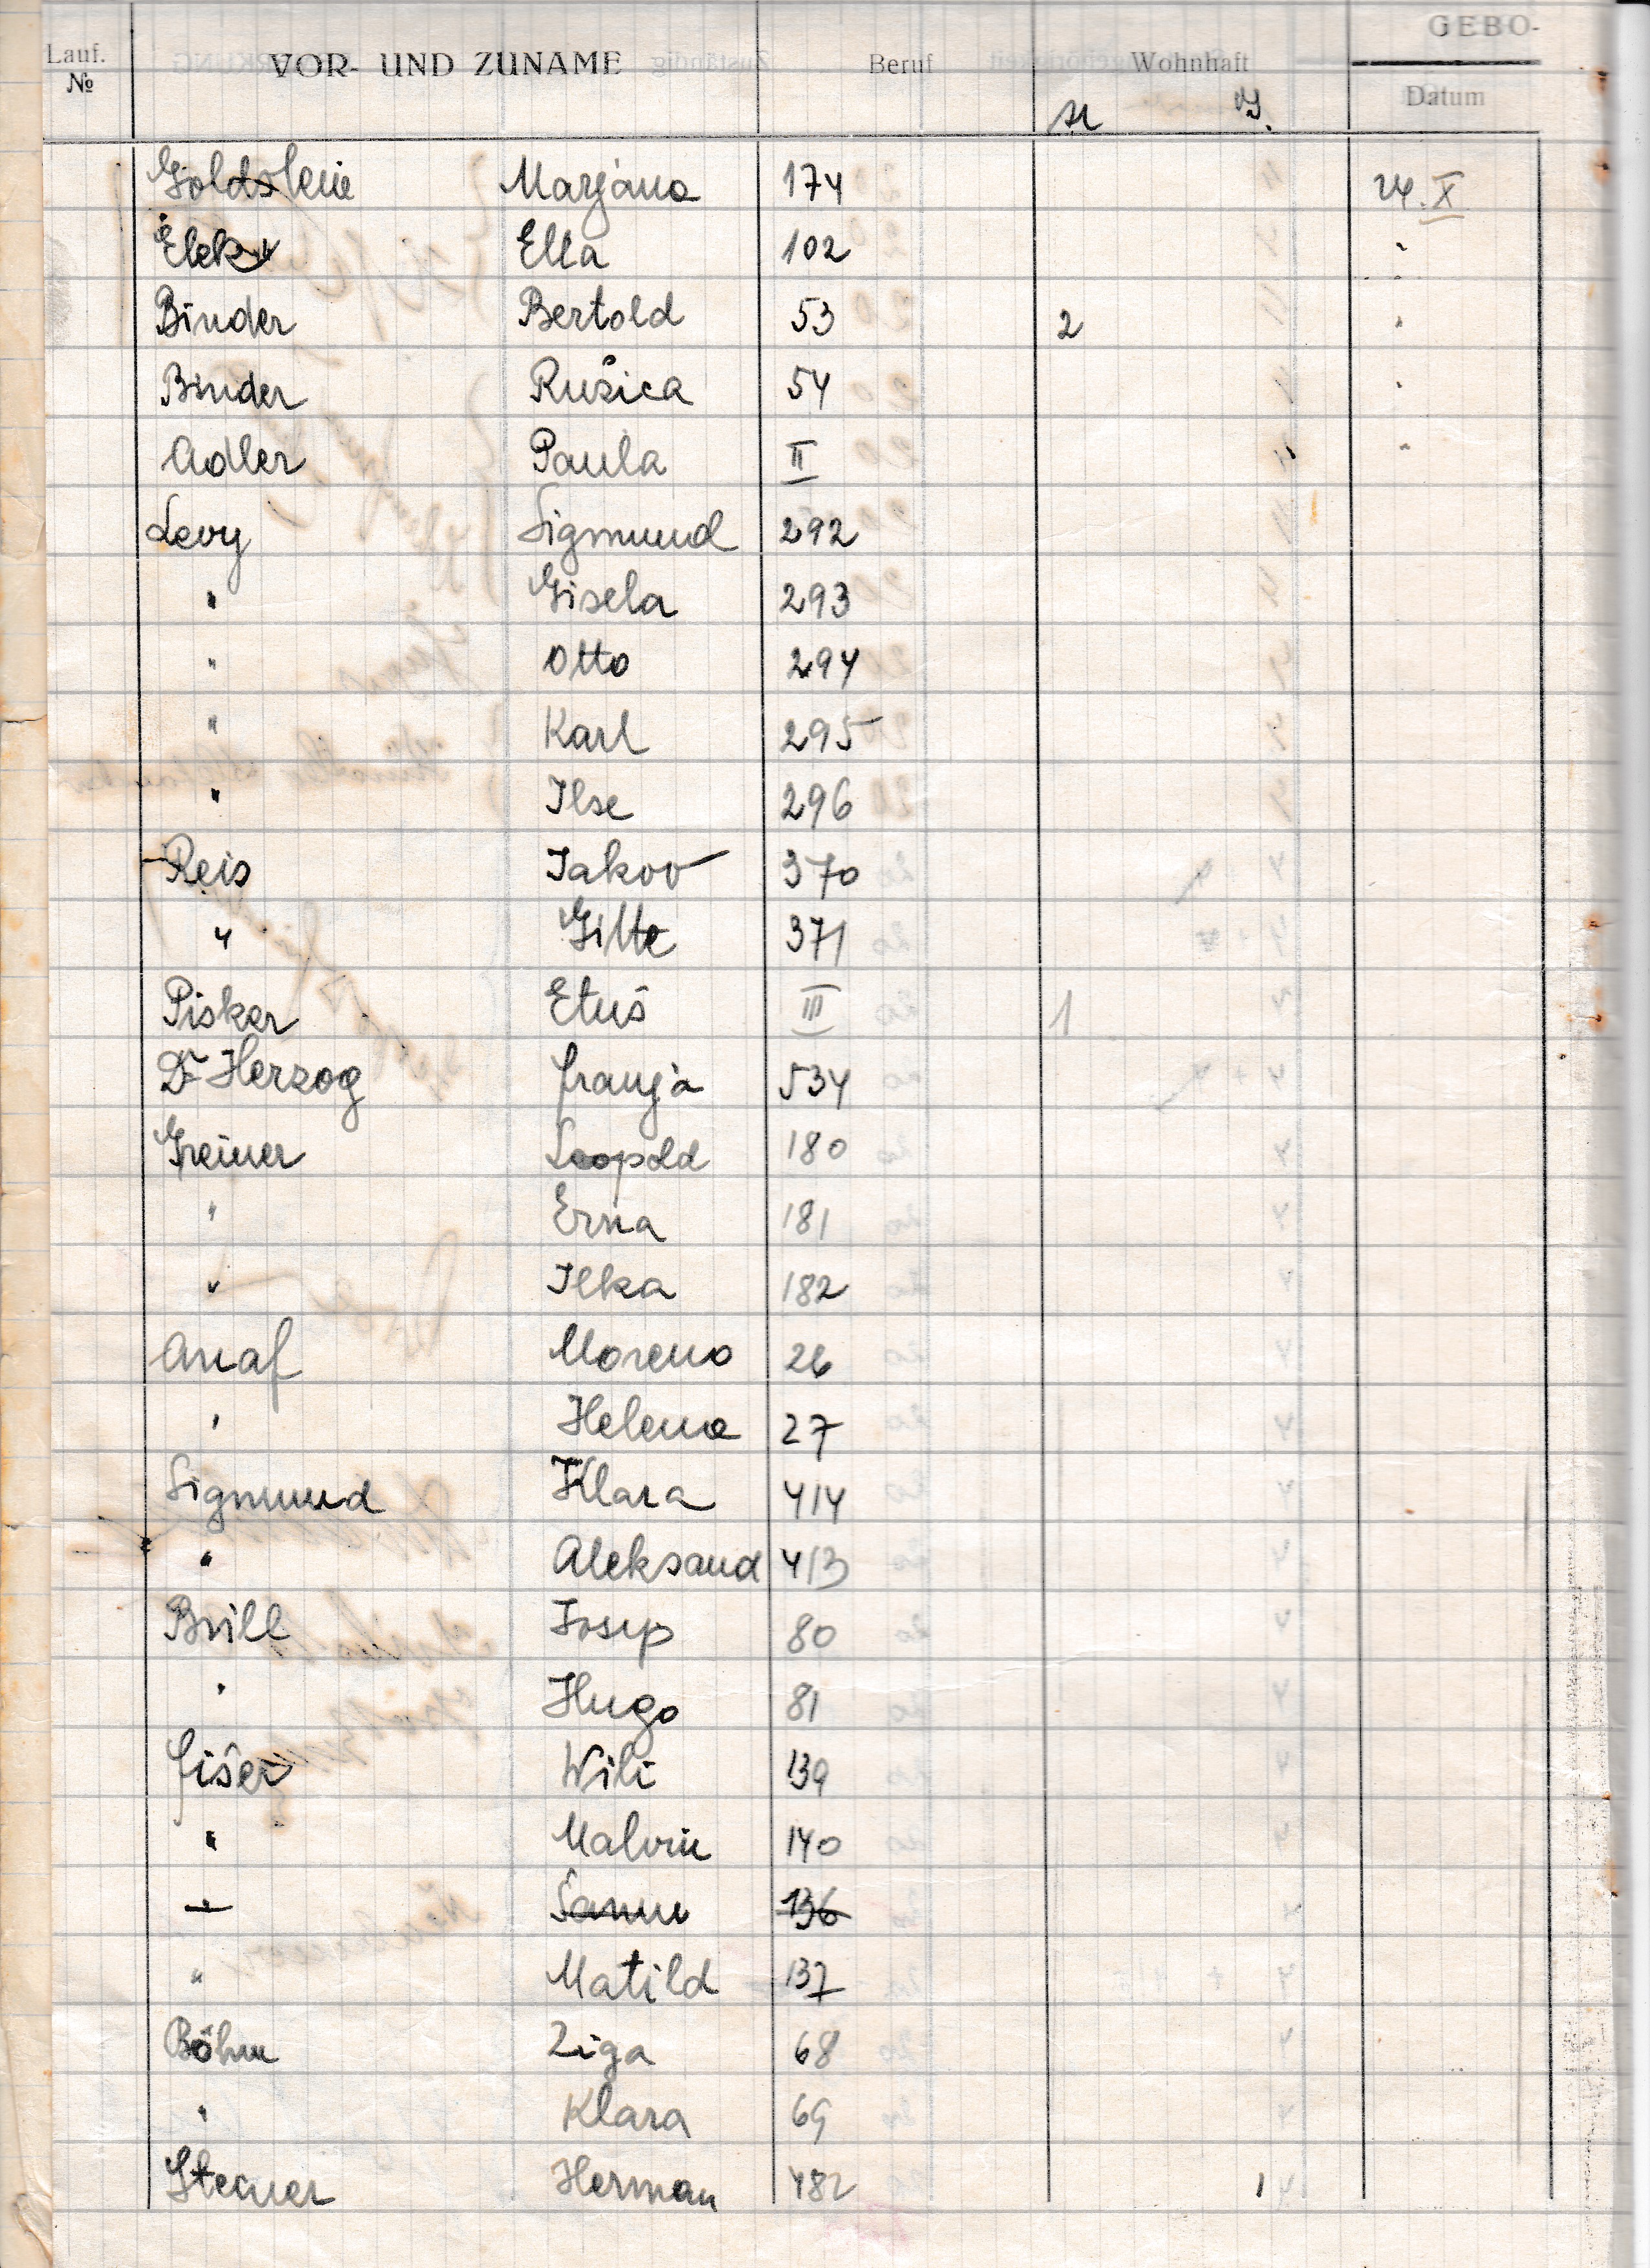 GEBO-
Lauf. № VOR- UND ZUNAME Beruf Wohnhaft Datum
Goldstein Marjana 174 24. X
Elek Ella 102 "
Binder Bertold 53 2 "
Binder Ružica 54 "
Adler Paula II "
Levy Sigmund 292
" Gisela 293
" Otto 294
" Karl 295
" Ilse 296
Reis Jakov 370
" Gitte 371
Pisker Etuš III 1
Dr Herzog Franja 534
Greiner Leopold 180
" Erna 181
" Ilka 182
Anaf Moreno 26
" Helena 27
Sigmund Klara 414
" Aleksand 413
Brill Josip 80
" Hugo 81
Fišer Wili 139
" Malvin 140
" 136
" Matild 137
Böhm Ziga 68
" Klara 69
Steiner Herman 482 1